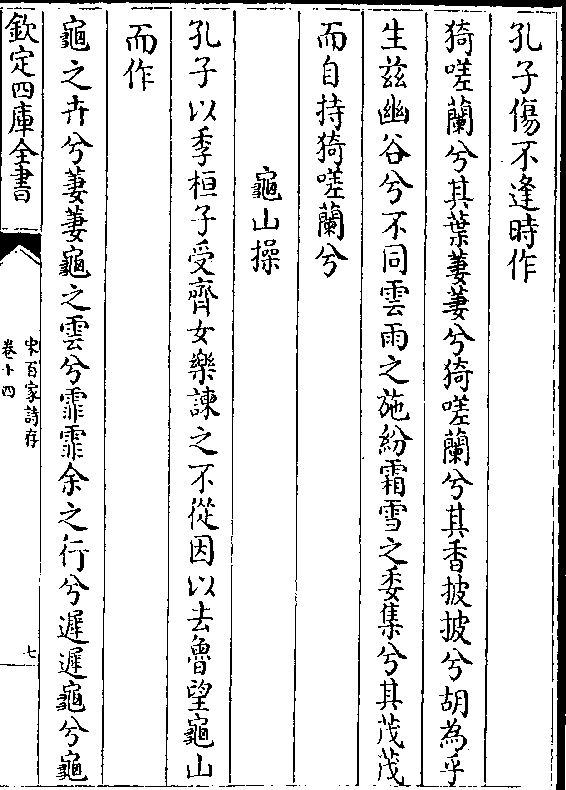 孔子傷不逢時作
猗嗟蘭兮其葉萋萋兮猗嗟蘭兮其香披披兮胡為乎
生兹幽谷兮不同雲雨之施紛霜雪之委集兮其茂茂
而自持猗嗟蘭兮
龜山操
孔子以季桓子受齊女樂諫之不從因以去魯望龜山
而作
龜之卉兮萋萋龜之雲兮霏霏余之行兮遲遲龜兮龜
欽定四庫全書
宋百家詩存
卷十四
七